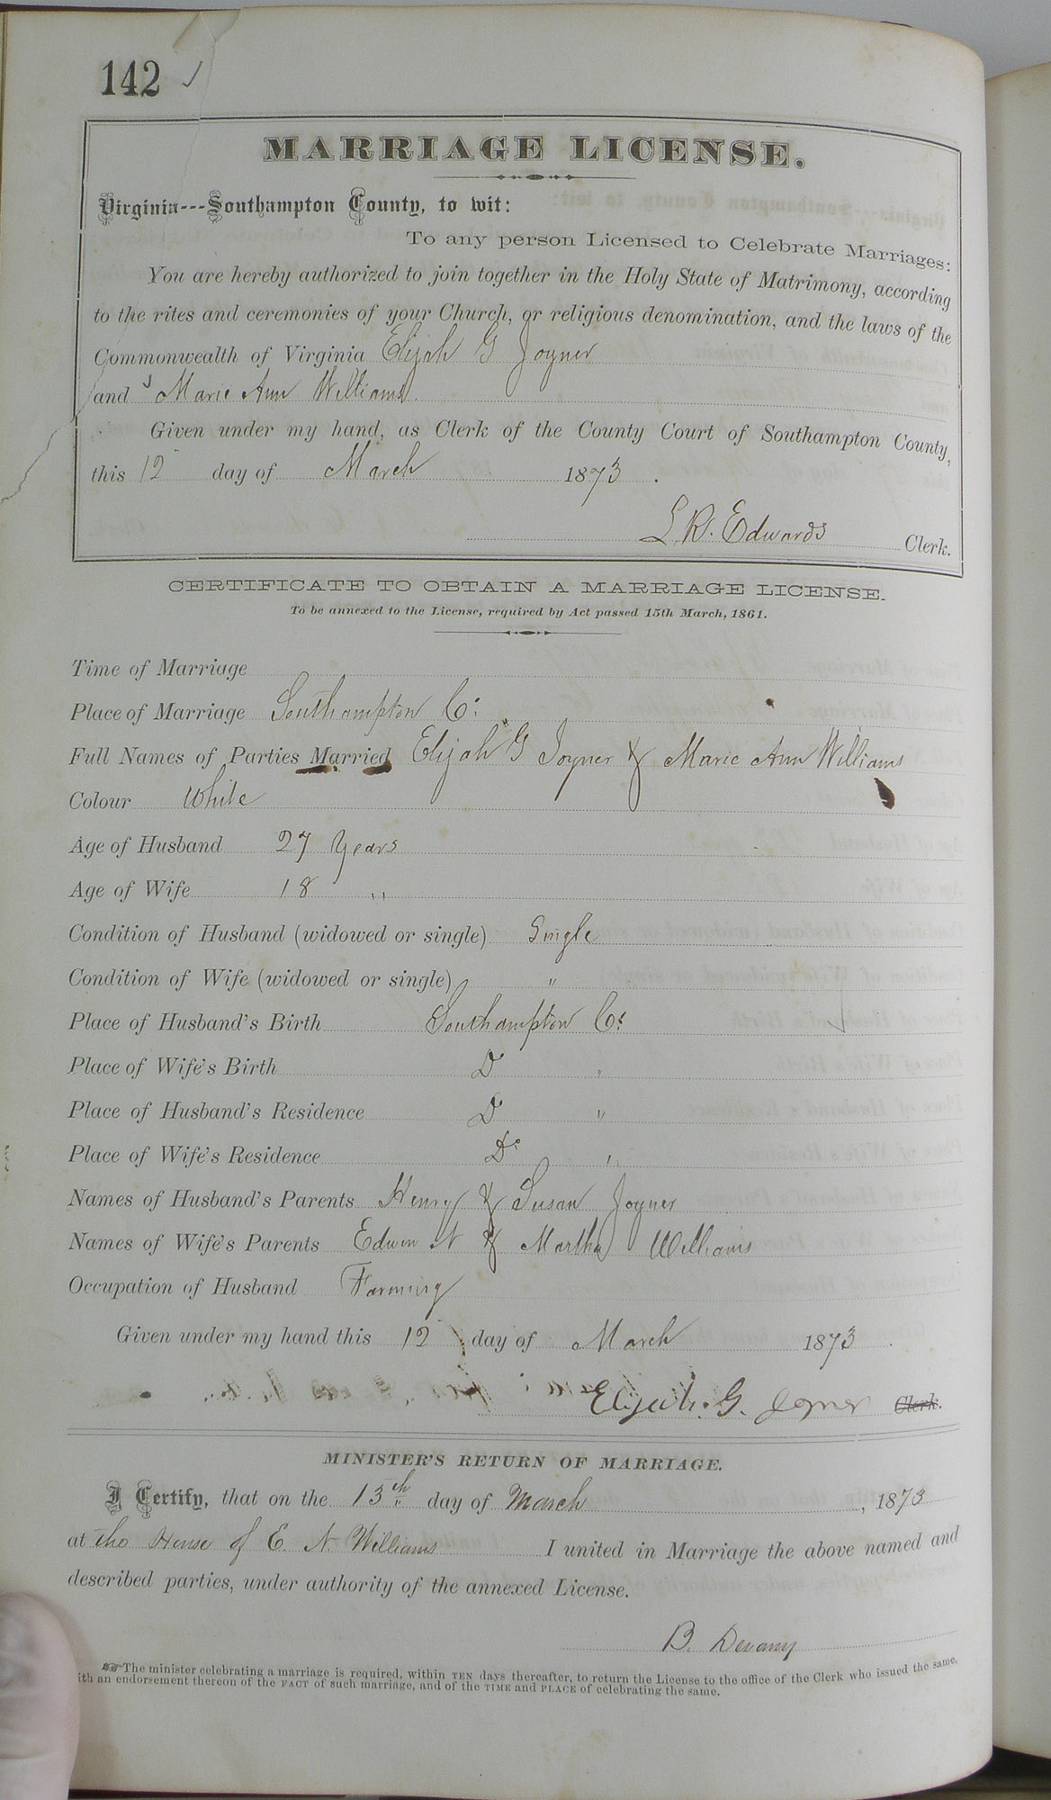 142 ✓
MARRIAGE LICENSE.
Virginia---Southampton County, to wit:
To any person Licensed to Celebrate Marriages:
You are hereby authorized to join together in the Holy State of Matrimony, according
to the rites and ceremonies of your Church, or religious denomination, and the laws of the
Commonwealth of Virginia Elijah G Joyner
and Marie Ann Williams
Given under my hand, as Clerk of the County Court of Southampton County,
this 12 day of March 1873.
L. R. Edwards Clerk.
CERTIFICATE TO OBTAIN A MARRIAGE LICENSE.
To be annexed to the License, required by Act passed 15th March, 1861.
Time of Marriage
Place of Marriage Southampton Co:
Full Names of Parties Married Elijah G Joyner & Marie Ann Williams
Colour White
Age of Husband 27 Years
Age of Wife 18 "
Condition of Husband (widowed or single) Single
Condition of Wife (widowed or single) "
Place of Husband's Birth Southampton Co:
Place of Wife's Birth Do "
Place of Husband's Residence Do "
Place of Wife's Residence Do "
Names of Husband's Parents Henry & Susan Joyner
Names of Wife's Parents Edwin N & Martha Williams
Occupation of Husband Farming
Given under my hand this 12 day of March 1873.
Elijah. G. Joyner Clerk.
MINISTER'S RETURN OF MARRIAGE.
I Certify, that on the 13th day of March, 1873
at the House of E. N. Williams I united in Marriage the above named and
described parties, under authority of the annexed License.
B. Devany
☞ The minister celebrating a marriage is required, within TEN days thereafter, to return the License to the office of the Clerk who issued the same,
with an endorsement thereon of the FACT of such marriage, and of the TIME and PLACE of celebrating the same.